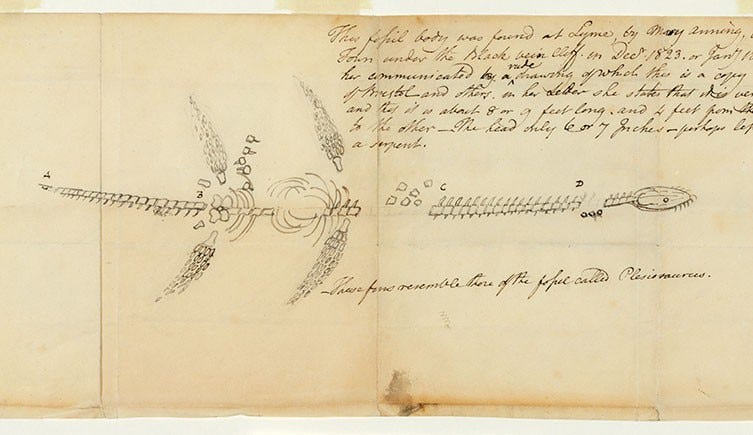 This fossil body was found at Lyme, by Mary Anning,
Town under the Black vein Cliff. in Decr. 1823. or Jany.
her communicated by a rude drawing of which this is a copy
of Bristol and others. in her Letter she states that it is
and that it is about 8 or 9 feet long. and 4 feet from
to the other — The head only 6 or 7 Inches — perhaps
a serpent.
A
B
C
D
— These fins resemble those of the fossil called Plesiosaurus.